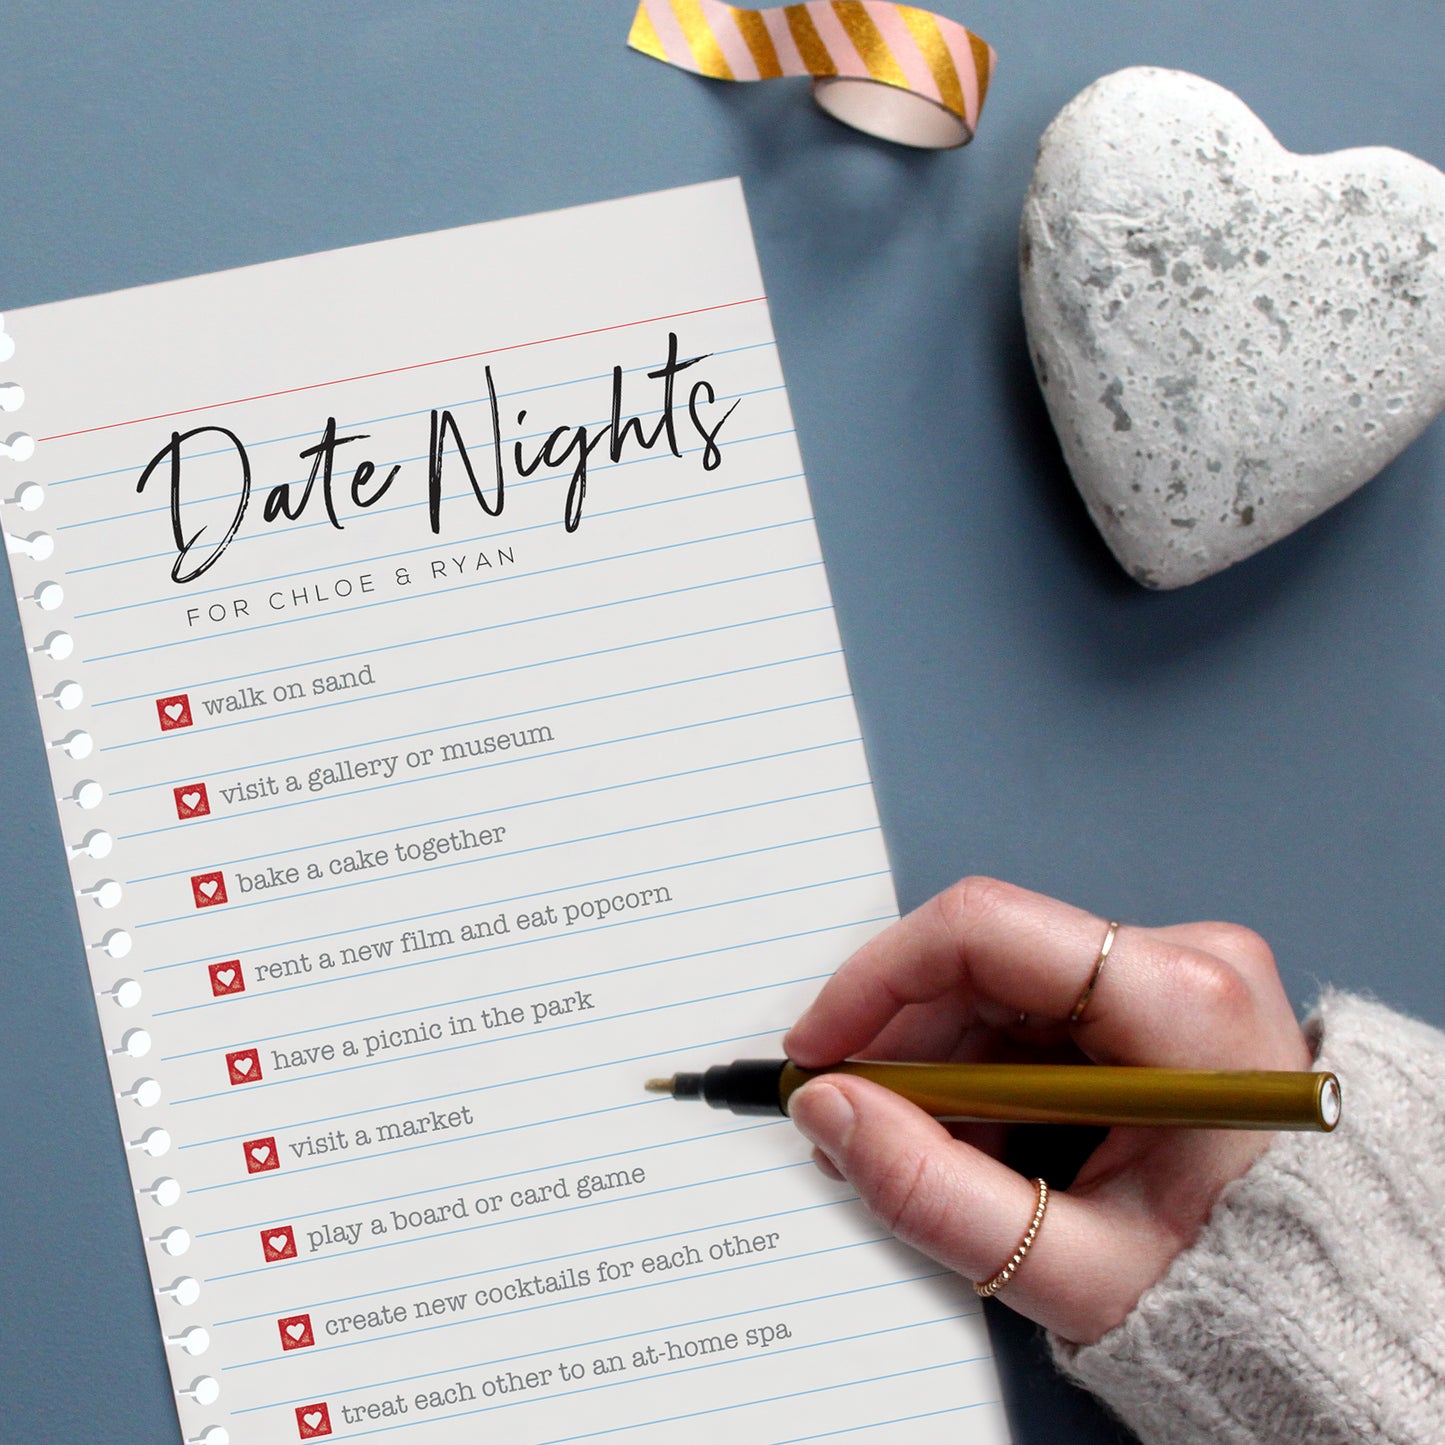 Date Nights
FOR CHLOE & RYAN
walk on sand
visit a gallery or museum
bake a cake together
rent a new film and eat popcorn
have a picnic in the park
visit a market
play a board or card game
create new cocktails for each other
treat each other to an at-home spa